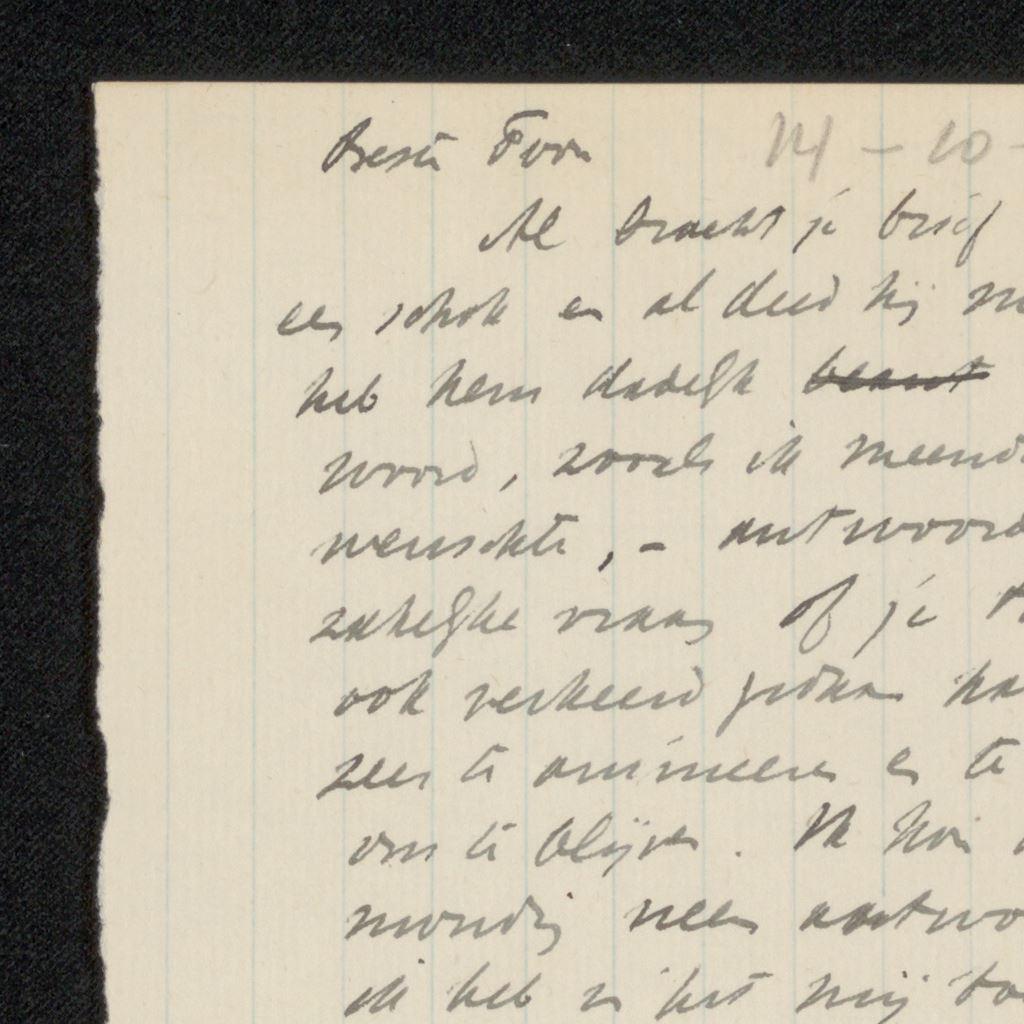 Beste Toon 14 - 10 -
Al bracht je brief
een schok en al deed hij
heb hem dadelijk beant
woord, zooals ik meend
wenschte, - antwoord
zakelijke vraag of je
ook verkeerd gedaan ha
zeer te animeeren en te
om te blijven. Ik kon
mondig neen antwo
ik heb in het mij to